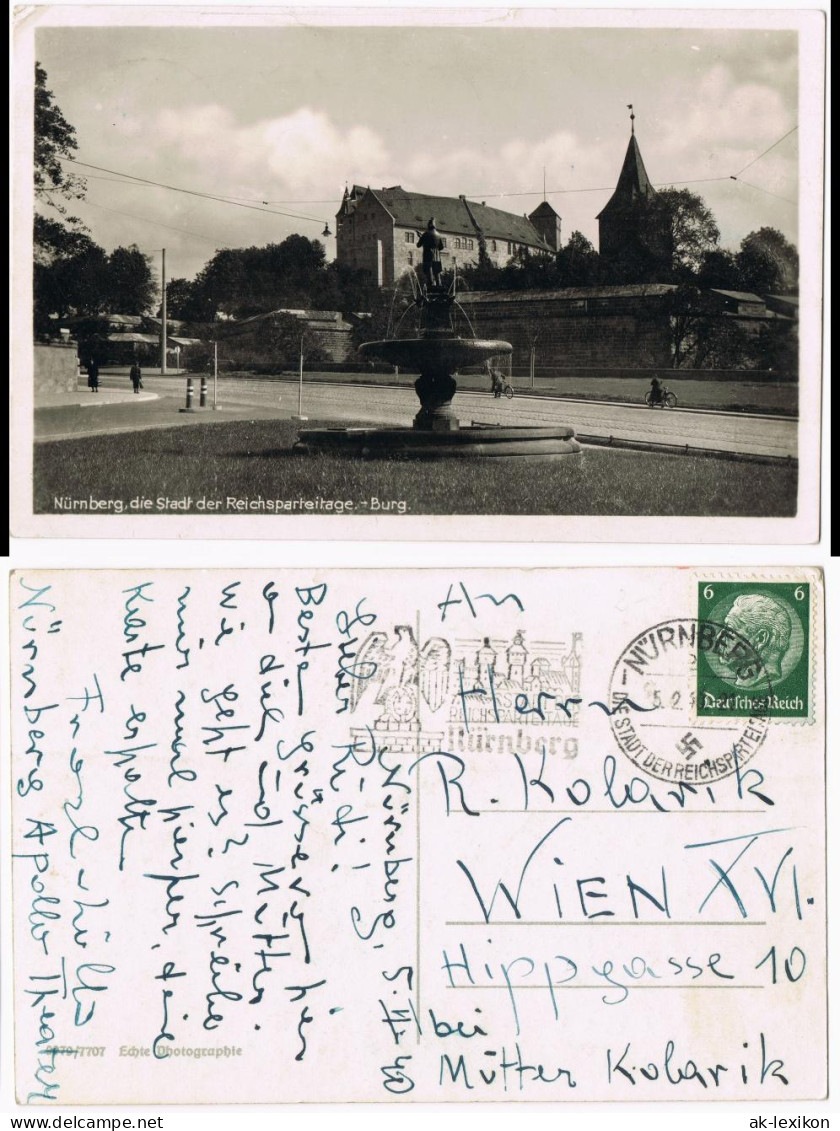 Nürnberg, die Stadt der Reichsparteitage. - Burg.
Nürnberg, 5. II. 40
Lieber Rudi!
Beste Grüsse von hier
an dich und Mutter.
Wie geht es? Schreibe
mir mal hierher, deine
Karte erhalten
Franzl
Nürnberg Apollo Theater
9979/7707 Echte Photographie
An
Herrn
R. Kolarik
WIEN XVI.
Hippgasse 10
bei
Mutter Kolarik
REICHSPARTEITAGE
Nürnberg
NÜRNBERG
5.2.
DIE STADT DER REICHSPARTEITAGE
6 6
Deutsches Reich
ak-lexikon